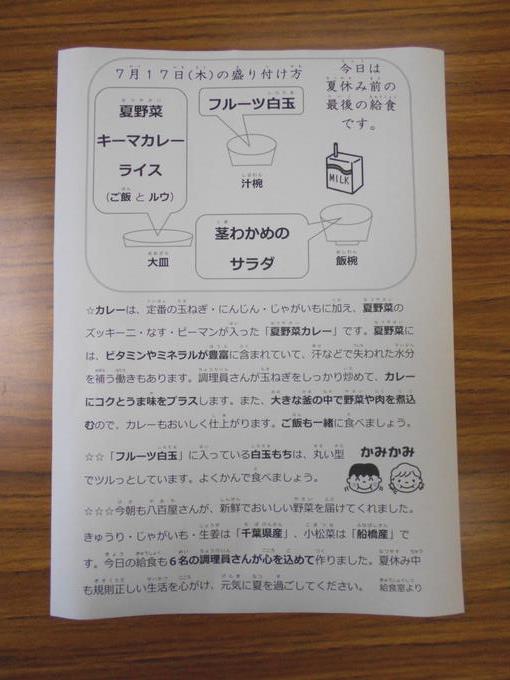 7月17日(木)の盛り付け方
今日は
夏休み前の
最後の給食
です。
夏野菜
キーマカレー
ライス
(ご飯とルウ)
フルーツ白玉
汁椀
MILK
茎わかめの
サラダ
大皿
飯椀
☆カレーは、定番の玉ねぎ・にんじん・じゃがいもに加え、夏野菜の
ズッキーニ・なす・ピーマンが入った「夏野菜カレー」です。夏野菜に
は、ビタミンやミネラルが豊富に含まれていて、汗などで失われた水分
を補う働きもあります。調理員さんが玉ねぎをしっかり炒めて、カレー
にコクとうま味をプラスします。また、大きな釜の中で野菜や肉を煮込
むので、カレーもおいしく仕上がります。ご飯も一緒に食べましょう。
☆☆「フルーツ白玉」に入っている白玉もちは、丸い型
でツルっとしています。よくかんで食べましょう。
かみかみ
☆☆☆今朝も八百屋さんが、新鮮でおいしい野菜を届けてくれました。
きゅうり・じゃがいも・生姜は「千葉県産」、小松菜は「船橋産」で
す。今日の給食も6名の調理員さんが心を込めて作りました。夏休み中
も規則正しい生活を心がけ、元気に夏を過ごしてください。 給食室より